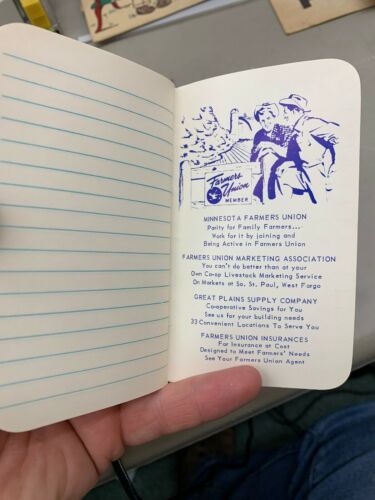 Farmers
Union
MEMBER
MINNESOTA FARMERS UNION
Parity for Family Farmers...
Work for it by joining and
Being Active in Farmers Union
FARMERS UNION MARKETING ASSOCIATION
You can't do better than at your
Own Co-op Livestock Marketing Service
On Markets at So. St. Paul, West Fargo
GREAT PLAINS SUPPLY COMPANY
Co-operative Savings for You
See us for your building needs
33 Convenient Locations To Serve You
FARMERS UNION INSURANCES
For Insurance at Cost
Designed to Meet Farmers' Needs
See Your Farmers Union Agent